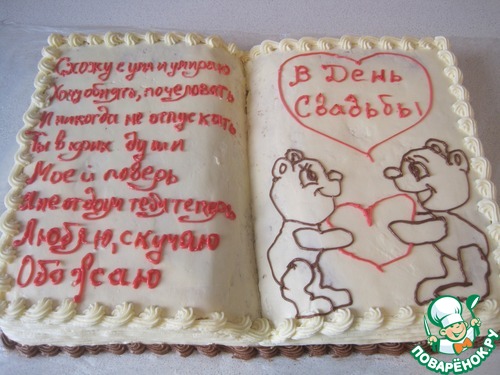 Схожу с ума и умираю
Хочу обнять, поцеловать
И никогда не отпускать
Ты в крик души
Моей поверь
Я не отдам тебя теперь
Люблю, скучаю
Обожаю
В День
Свадьбы
ПОВАРЁНОК.РУ